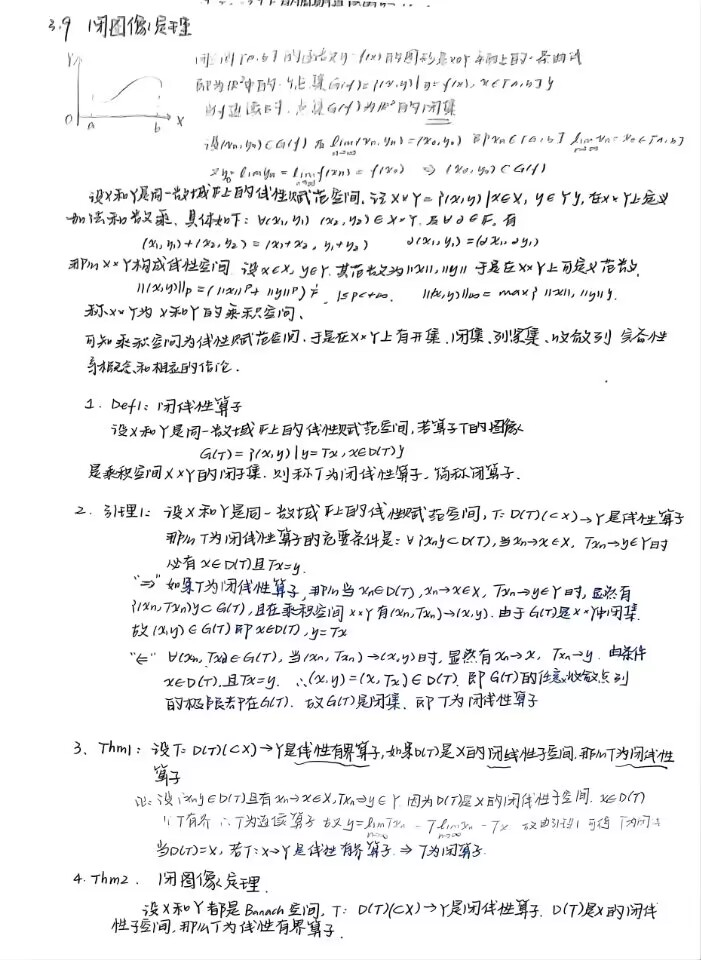 3.9 闭图像定理
Y
O a b X
闭区间[a,b]的函数y=f(x)的图形是xoy平面上的一条曲线
即为R²中的点集G(f)={(x,y)|y=f(x), x∈[a,b]}
当f连续时,点集G(f)为R²的闭集
设(xn,yn)⊂G(f) 且 lim(n→∞)(xn,yn)=(x0,y0) 即xn∈[a,b] lim(n→∞)xn=x0∈[a,b]
y0=lim yn=lim(n→∞)f(xn)=f(x0) ⇒ (x0,y0)⊂G(f)
设X和Y是同一数域F上的线性赋范空间,记X×Y={(x,y)|x∈X, y∈Y},在X×Y上定义
加法和数乘,具体如下:∀(x1,y1) (x2,y2)∈X×Y 及∀∂∈F,有
(x1,y1)+(x2,y2)=(x1+x2, y1+y2) ∂(x1,y1)=(∂x1,∂y1)
那么X×Y构成线性空间 设x∈X, y∈Y. 其范数为||x||,||y|| 于是在X×Y上可定义范数,
||(x,y)||p=(||x||^p+||y||^p)^(1/p), 1≤p<+∞. ||(x,y)||∞=max{||x||,||y||}.
称X×Y为X和Y的乘积空间.
可知乘积空间为线性赋范空间,于是在X×Y上有开集、闭集、列紧集、收敛列 完备性
等概念和相应的结论.
1. Def1: 闭线性算子
设X和Y是同一数域F上的线性赋范空间,若算子T的图像
G(T)={(x,y)|y=Tx, x∈D(T)}
是乘积空间X×Y的闭子集,则称T为闭线性算子,简称闭算子.
2. 引理1: 设X和Y是同一数域F上的线性赋范空间,T: D(T)(⊂X)→Y是线性算子
那么T为闭线性算子的充要条件是:∀{xn}⊂D(T),当xn→x∈X, Txn→y∈Y时
必有x∈D(T)且Tx=y.
"⇒" 如果T为闭线性算子,那么当xn∈D(T),xn→x∈X, Txn→y∈Y时,显然有
{(xn,Txn)}⊂G(T),且在乘积空间X×Y有(xn,Txn)→(x,y).由于G(T)是X×Y中闭集.
故(x,y)∈G(T)即x∈D(T),y=Tx
"⇐" ∀(xn,Txn)∈G(T),当(xn,Txn)→(x,y)时,显然有xn→x, Txn→y.由条件
x∈D(T),且Tx=y. ∴(x,y)=(x,Tx)∈D(T).即G(T)的任意收敛点列
的极限都在G(T).故G(T)是闭集.即T为闭线性算子
3. Thm1: 设T: D(T)(⊂X)→Y是线性有界算子,如果D(T)是X的闭线性子空间.那么T为闭线性
算子
证:设{xn}∈D(T)且有xn→x∈X,Txn→y∈Y.因为D(T)是X的闭线性子空间. x∈D(T)
∵T有界 ∴T为连续算子 故y=lim(n→∞)Txn=T lim(n→∞)xn=Tx 故由引理1可得 T为闭
当D(T)=X,若T:X→Y是线性有界算子.⇒T为闭算子.
4. Thm2. 闭图像定理.
设X和Y都是Banach空间,T: D(T)(⊂X)→Y是闭线性算子. D(T)是X的闭线
性子空间.那么T为线性有界算子.